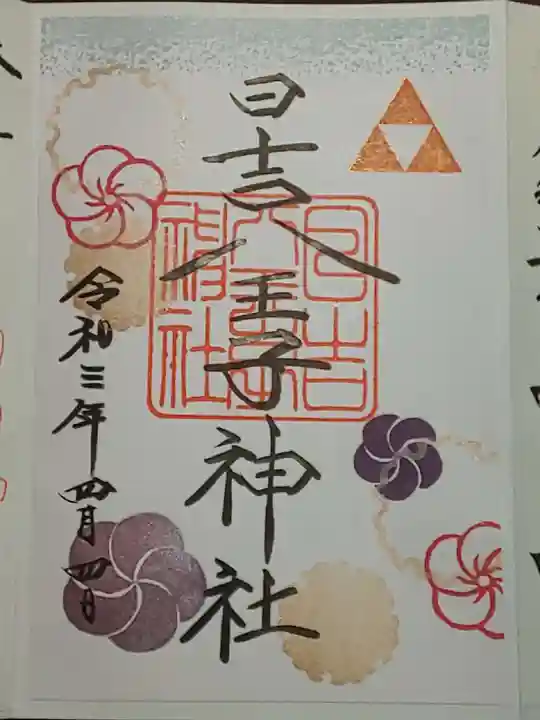 日吉八王子神社
日吉
八王子
神社
令和三年四月四日